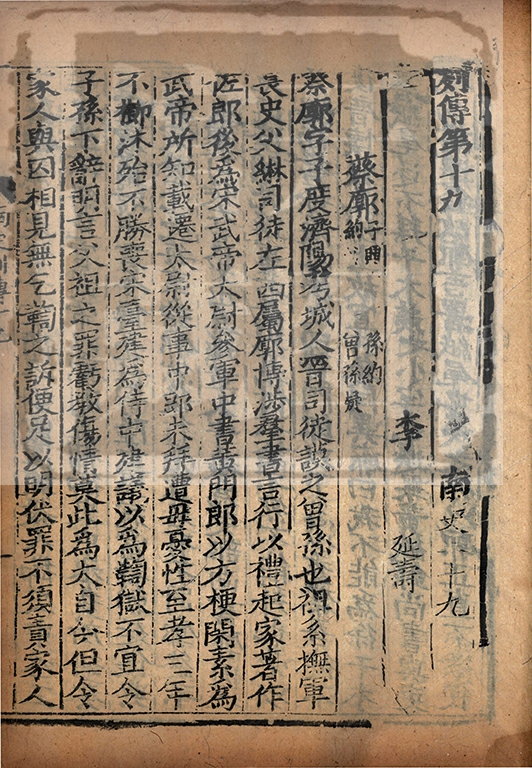 列傳第十九 南史二十九
李 延壽
蔡廓子興宗 孫約
約弟撙 曾孫凝
蔡廓字子度濟陽考城人晉司徒謨之曾孫也祖系撫軍
長史父綝司徒左西屬廓博涉羣書言行以禮起家著作
佐郎後爲宋武帝太尉參軍中書黃門郎以方梗閑素爲
武帝所知載遷太尉從事中郎未拜遭母憂性至孝三年
不櫛沐殆不勝喪宋臺建爲侍中建議以爲鞫獄不宜令
子孫下辭明言父祖之罪虧教傷情莫此爲大自今但令
家人與囚相見無乞鞫之訴便足以明伏罪不須責家人